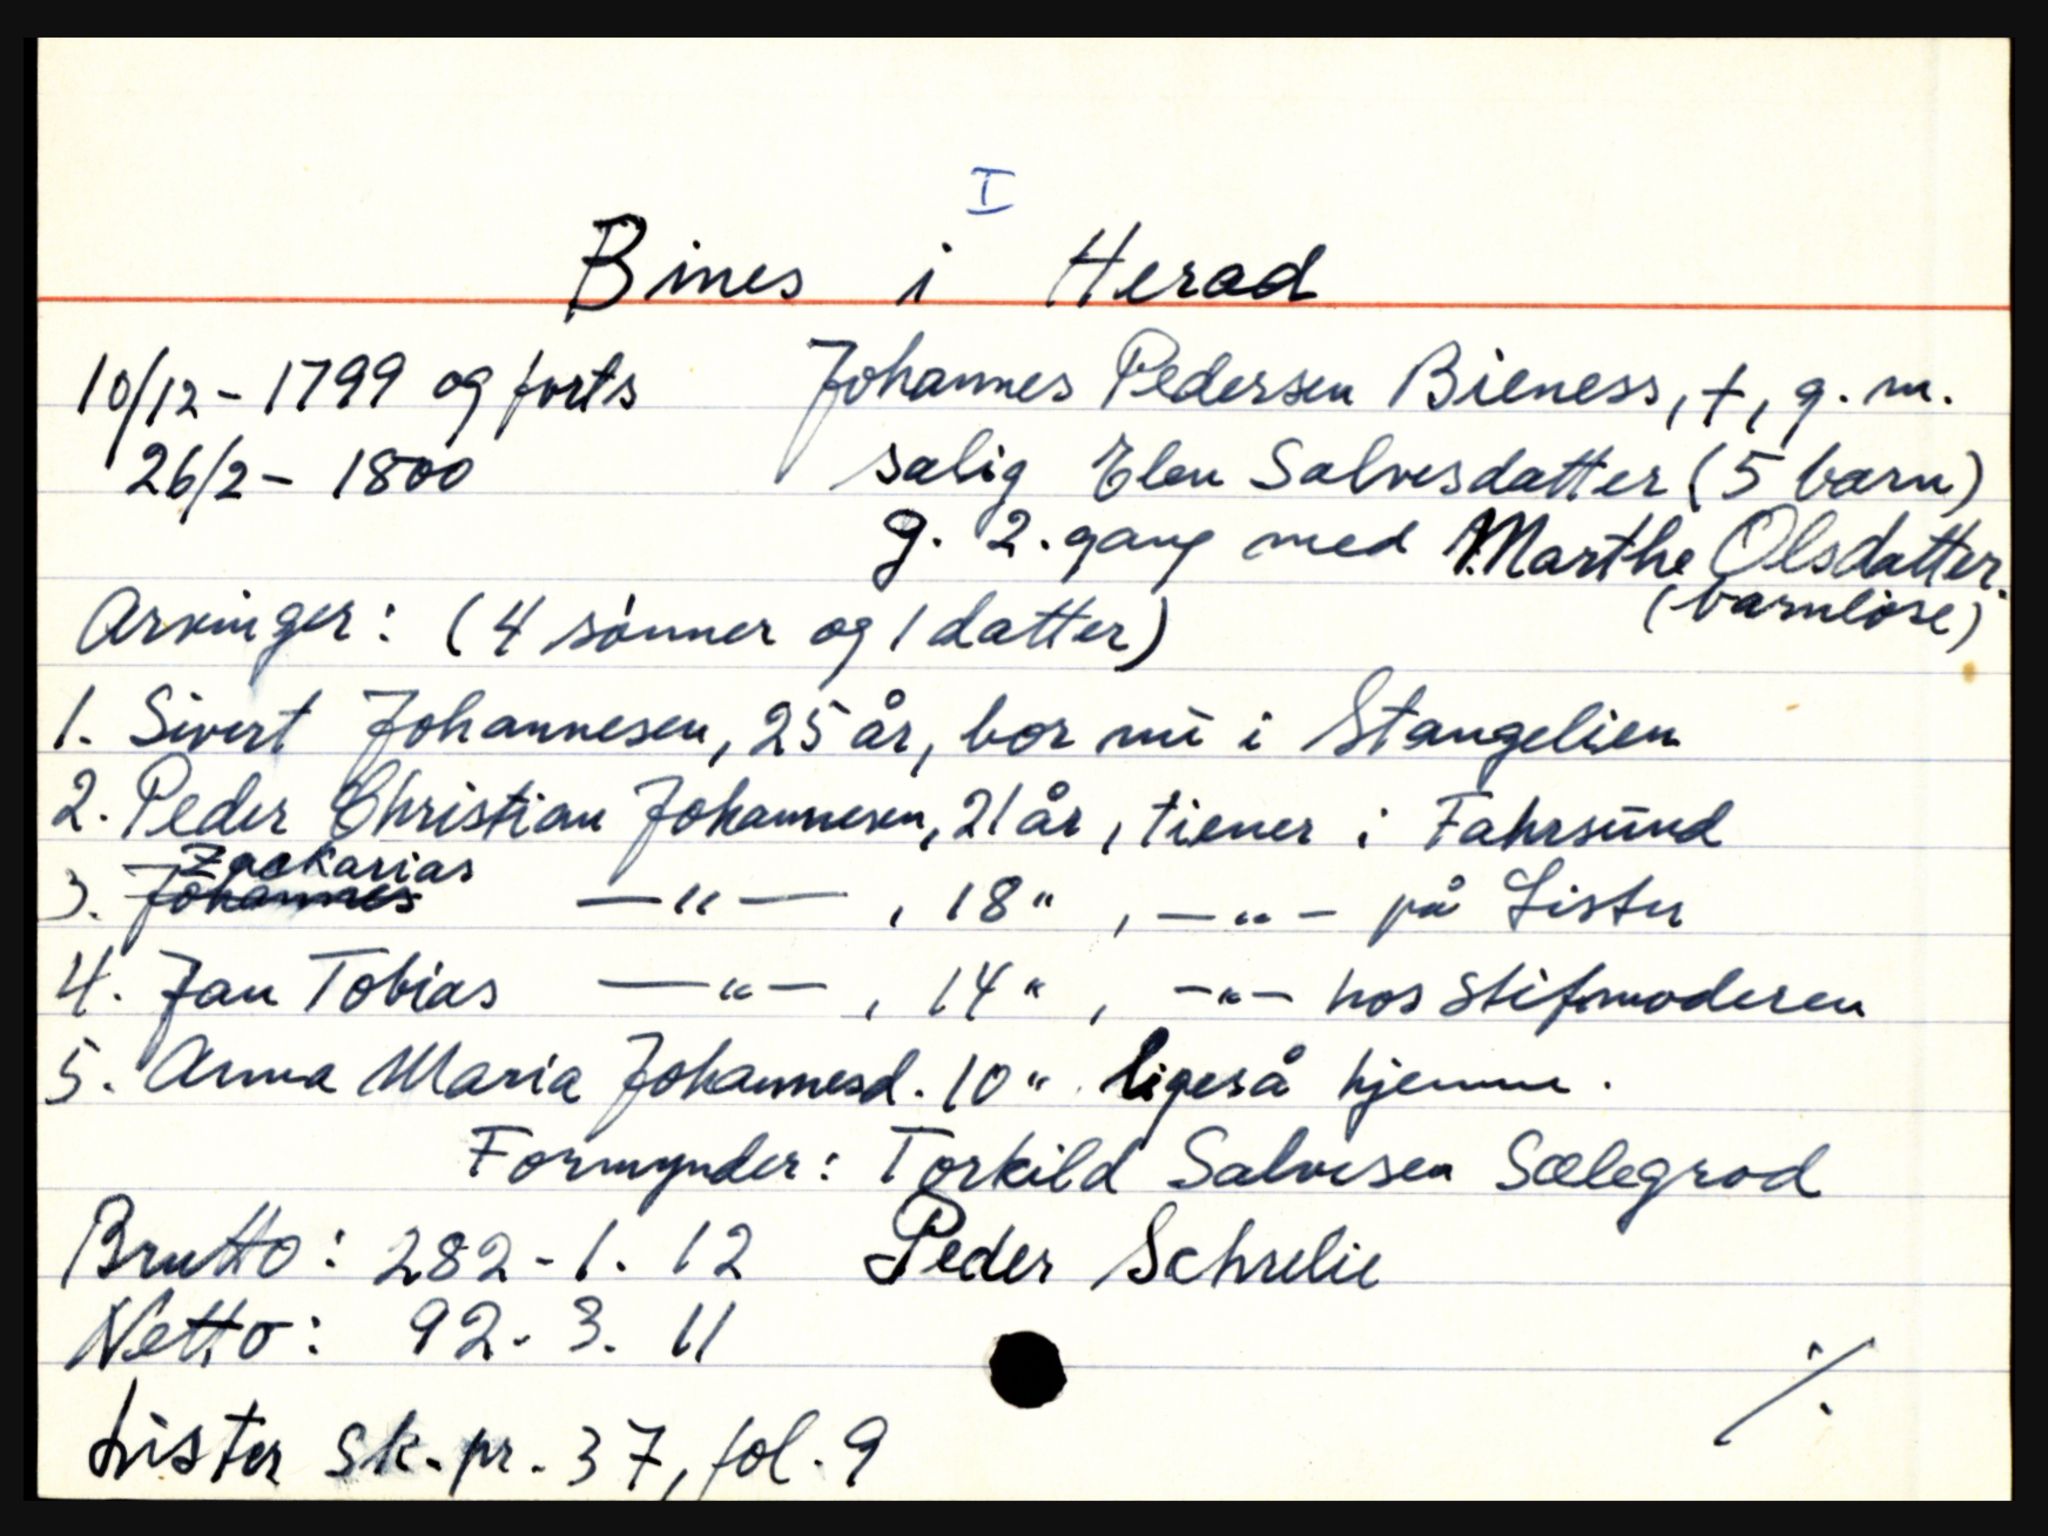 I
Bines i Herad
10/12 - 1799 og forts Johannes Pedersen Bieness, +, g. m.
26/2 - 1800 salig Elen Salvesdatter (5 barn)
g. 2. gang med Marthe Olsdatter.
(barnløse)
Arvinger: (4 sønner og 1 datter)
1. Sivert Johannesen, 25 år, bor nu i Stangelien
2. Peder Christian Johannesen, 21 år, tiener i Fahrsund
Zackarias
3. Johannes —"— , 18 " , —"— på Lister
4. Jan Tobias —"— , 14 " , —"— hos stifmoderen
5. Anna Maria Johannesd. 10 " ligeså hjemme.
Formynder: Torkild Salvesen Sælegrod
Brutto: 282 - 1. 12 Peder Schrelie
Netto: 92. 3. 11
·/.
Lister sk. pr. 37, fol. 9